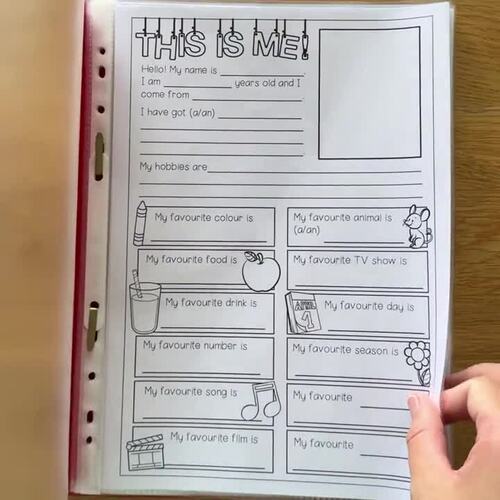 THIS IS ME!
Hello! My name is
I am years old and I
come from
I have got (a/an)
My hobbies are
My favourite colour is
My favourite animal is
(a/an)
My favourite food is
My favourite TV show is
My favourite drink is
My favourite day is
APRIL
1
My favourite number is
My favourite season is
My favourite song is
My favourite
My favourite film is
My favourite